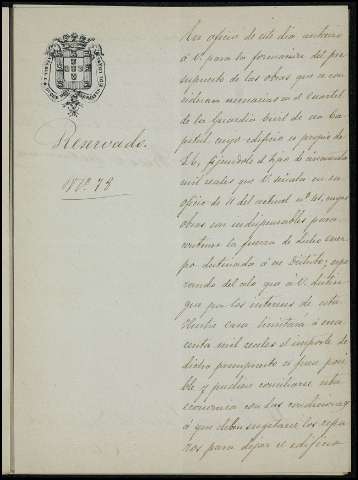 Reservado.
Nº. 78
En oficio de este dia autorizo
á V. para la formacion del pre-
supuesto de las obras que se con-
sideran necesarias en el Cuartel
de la Guardia Civil de esa Ca-
pital cuyo edificio es propio de
S.E., fijandole el tipo de cincuenta
mil reales que V. señala en su
oficio de 11 del actual nº 41, cuyas
obras son indispensables para
contener la fuerza de dicho cuer-
po destinada á ese Distrito; espe-
rando del celo que á V. distin-
gue por los intereses de esta
Ilustre casa limitará á cin-
cuenta mil reales el importe de
dicho presupuesto si fuese posi-
ble y pudiese conciliarse esta
economia con las condiciones
á que deben sugetarse los repa-
ros para dejar el edificio